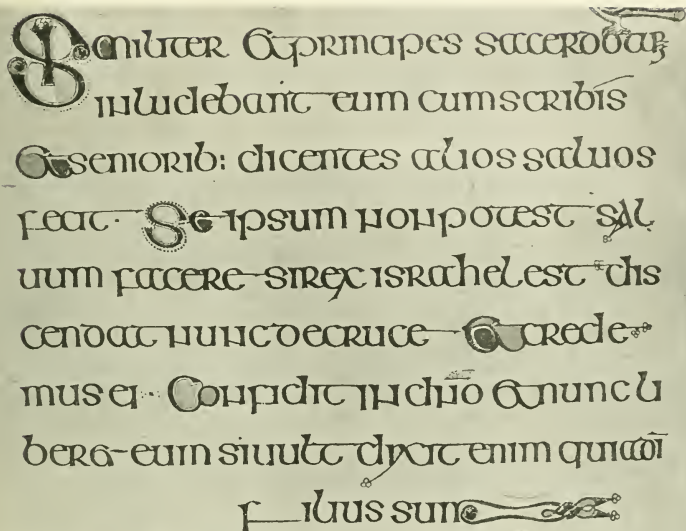 Similiter et principes sacerdotum
inludebant eum cum scribis
etseniorib: dicentes alios saluos
fecit· Se ipsum non potest sal
uum facere si rex israhel est dis
cendat nunc de cruce et crede
mus ei·· Confidit in dn̄o et nunc li
beret eum si uult dixit enim quia dī
filius sum